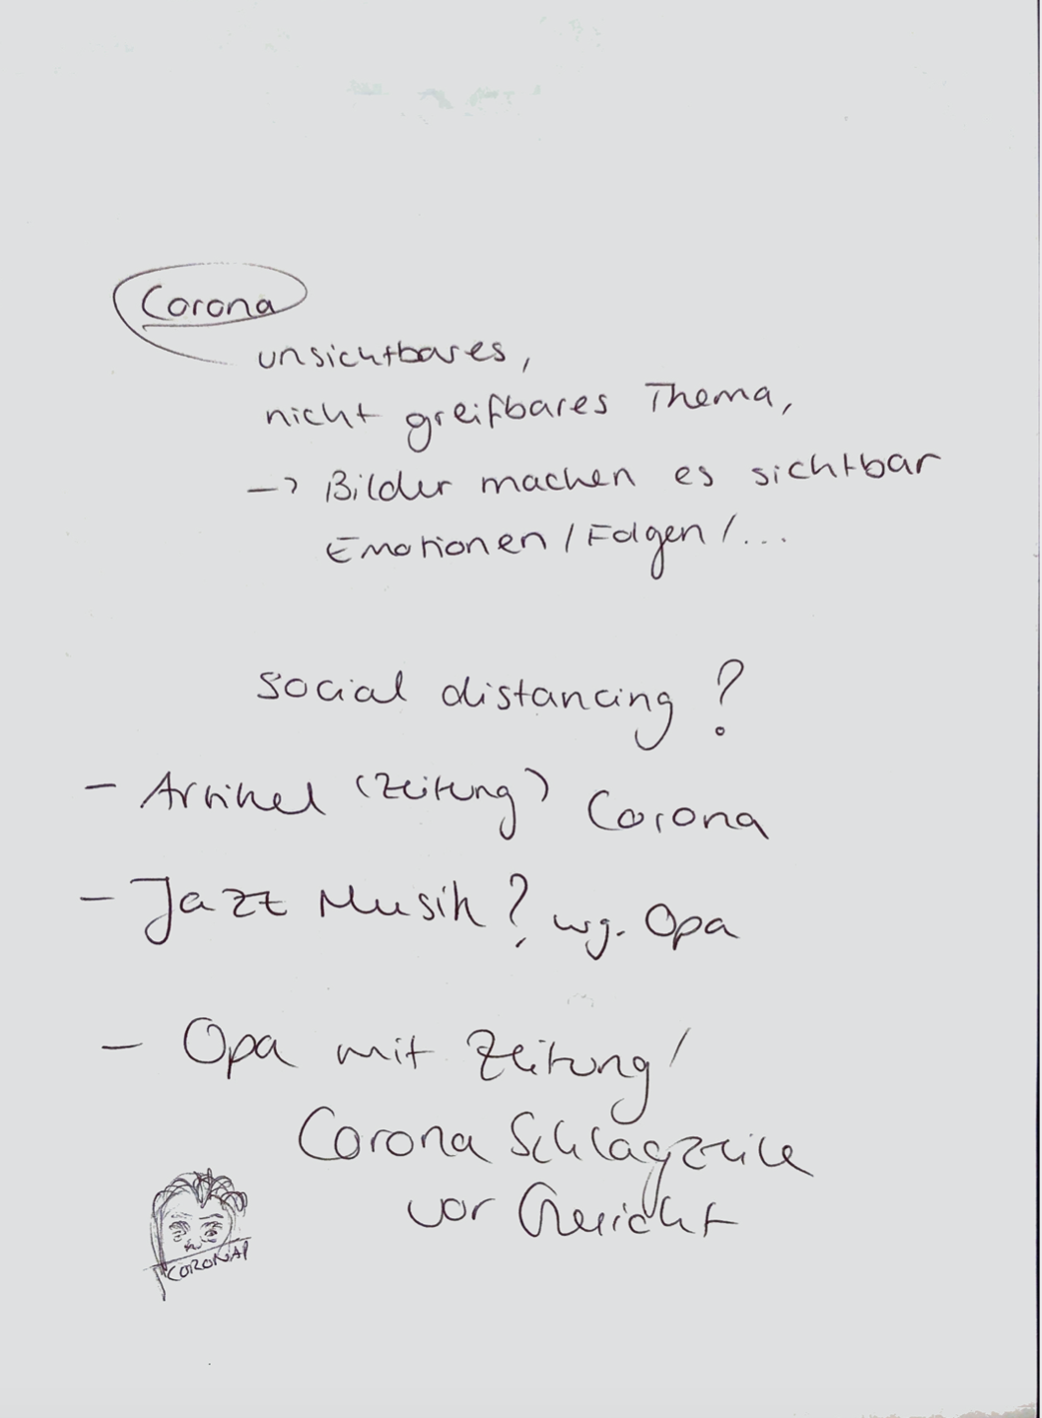 Corona
unsichtbares,
nicht greifbares Thema,
-> Bilder machen es sichtbar
Emotionen / Folgen / ...
social distancing ?
- Artikel (Zeitung) Corona
- Jazz Musik ? wg. Opa
- Opa mit Zeitung /
Corona Schlagzeile
vor Gesicht
CORONA!